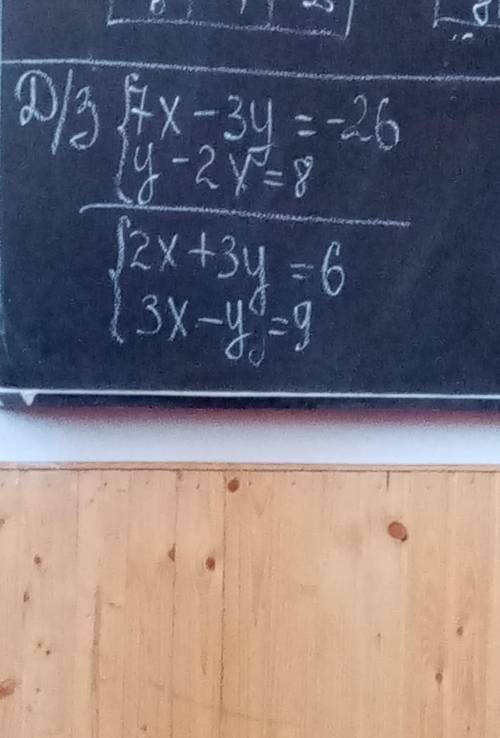 Д/з
7x - 3y = -26
y - 2x = 8
2x + 3y = 6
3x - y = 9